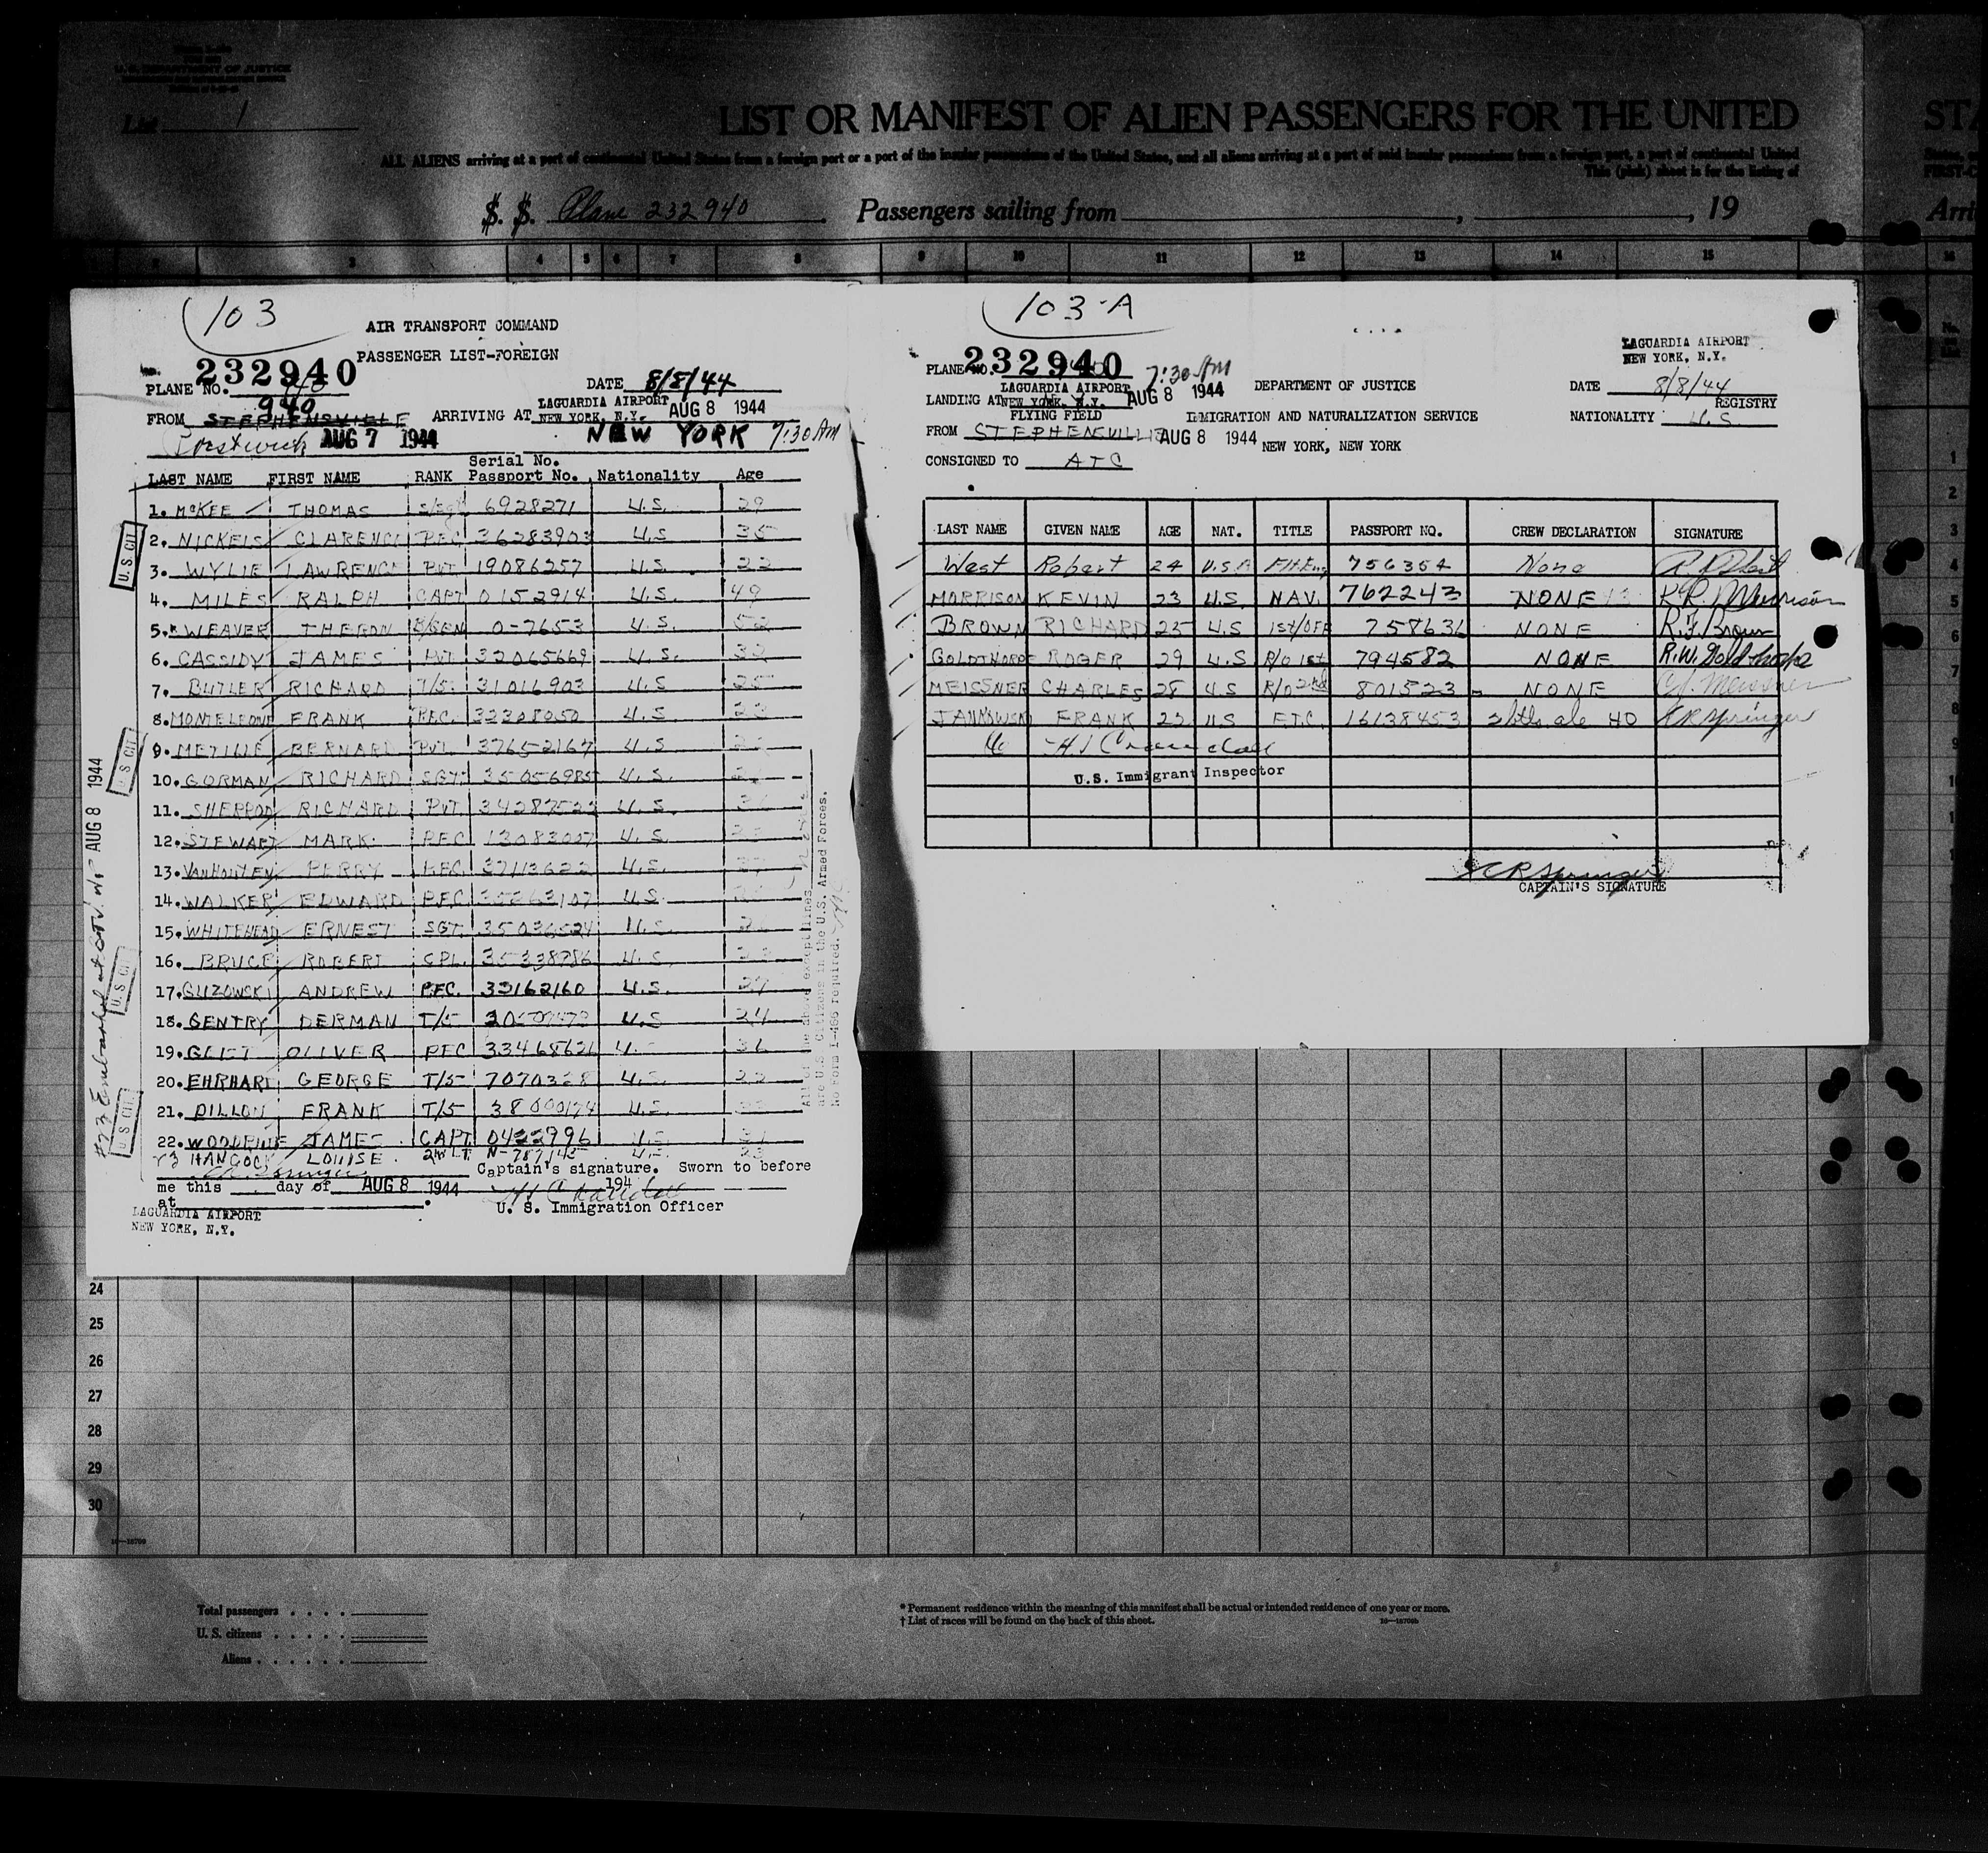 U. S. DEPARTMENT OF JUSTICE
List 1
LIST OR MANIFEST OF ALIEN PASSENGERS FOR THE UNITED
ALL ALIENS arriving at a port of continental United States from a foreign port or a port of the insular possessions of the United States, and all aliens arriving at a port of said insular possessions from a foreign port, a port of continental United
This (pink) sheet is for the listing of
S. S. Plane 232940 Passengers sailing from , , 19
Arri
2 3 4 5 6 7 8 9 10 11 12 13 14 15 16
103
AIR TRANSPORT COMMAND
PASSENGER LIST-FOREIGN
232940
PLANE NO. 940
DATE 8/8/44
FROM STEPHENSVILLE ARRIVING AT LAGUARDIA AIRPORT NEW YORK, N.Y. AUG 8 1944
AUG 7 1944 NEW YORK 7:30 AM
LAST NAME FIRST NAME RANK Serial No. Passport No. Nationality Age
1. McKEE THOMAS S/Sgt 6928271 U.S. 29
2. NICKELS CLARENCE PFC 36283903 U.S 35
3. WYLIE LAWRENCE PVT 19086257 U.S.
4. MILES RALPH CAPT 0152914 U.S. 49
5. WEAVER THERON B/GEN 0-7653 U.S. 52
6. CASSIDY JAMES PVT 32065669 U.S.
7. BUTLER RICHARD T/5 31011903 U.S 25
8. MONTELEONE FRANK PFC. 32308050 U.S 23
9. BERNARD PVT. 37652167 U.S.
10. GORMAN RICHARD SGT. 35056985 U.S.
11. SHERROD RICHARD PVT. U.S.
12. STEWART MARK PFC 13083007 U.S.
13. VANHOUTEN PERRY PFC. 37113622 U.S.
14. WALKER EDWARD PFC 35263107 U.S.
15. WHITEHEAD ERNEST SGT. 35036524 U.S.
16. BRUCE ROBERT CPL. 35338786 U.S.
17. GUZOWSKI ANDREW PFC. 33162160 U.S. 27
18. GENTRY DERMAN T/5 U.S 24
19. OLIVER PFC 33468621 U.
20. EHRHART GEORGE T/5 7070328 U.S.
21. DILLON FRANK T/5 38000174 U.S.
22. JAMES CAPT. 0422996 U.S.
23 HANCOCK LOUISE 2nd LT. N-787145 U.S. 23
Captain's signature. Sworn to before
me this day of AUG 8 1944 194
at
U. S. Immigration Officer
LAGUARDIA AIRPORT
NEW YORK, N.Y.
U.S. CIT
U S CIT
U.S CIT
U S CIT
AUG 8 1944
All of the above except lines
are U.S. Citizens in the U.S. Armed Forces.
No Form I-466 required.
103-A
232940
PLANE NO. 7:30 AM
LAGUARDIA AIRPORT
LANDING AT NEW YORK, N.Y. AUG 8 1944
FLYING FIELD
FROM STEPHENSVILLE AUG 8 1944
CONSIGNED TO ATC
DEPARTMENT OF JUSTICE
IMMIGRATION AND NATURALIZATION SERVICE
NEW YORK, NEW YORK
LAGUARDIA AIRPORT
NEW YORK, N.Y.
DATE 8/8/44
REGISTRY
NATIONALITY U.S.
LAST NAME GIVEN NAME AGE NAT. TITLE PASSPORT NO. CREW DECLARATION SIGNATURE
West Robert 24 U.S.A Flt.Eng 756354 None
MORRISON KEVIN 23 U.S. NAV. 762243 NONE K.R. Morrison
BROWN RICHARD 25 U.S 1st/OFF 758631 NONE R.F. Brown
GOLDTHORPE ROGER 29 U.S R/O 1st 794582 NONE R.W. Goldthorpe
MEISSNER CHARLES 28 U.S R/O 2nd 801523 NONE C.J. Meissner
FRANK US F.T.C. 16138453 2 btls ale HO KR Springer
U.S. Immigrant Inspector
CAPTAIN'S SIGNATURE
1
2
3
4
5
6
7
8
9
24
25
26
27
28
29
30
Total passengers
U. S. citizens
Aliens
* Permanent residence within the meaning of this manifest shall be actual or intended residence of one year or more.
† List of races will be found on the back of this sheet.